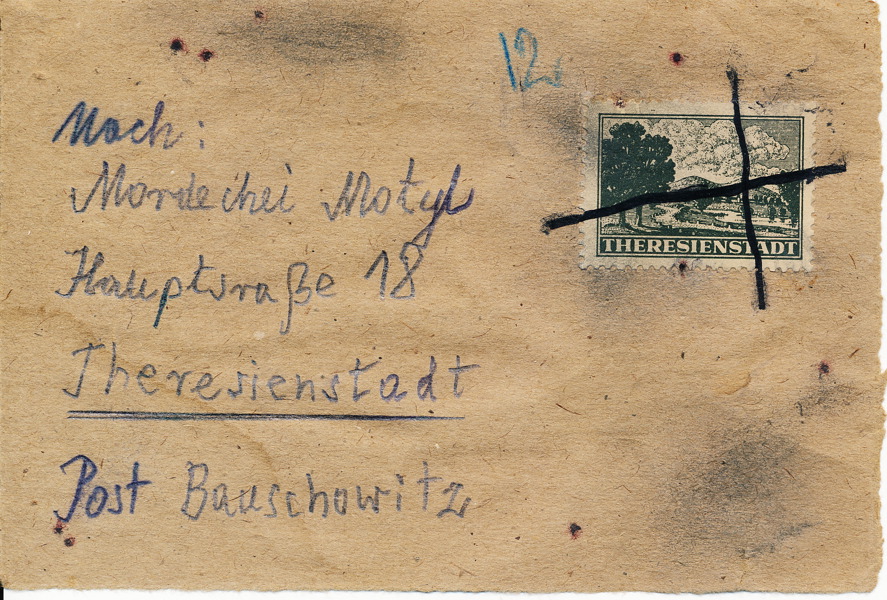 12
THERESIENSTADT
Nach:
Mordechei Motyl
Hauptsraße 18
Theresienstadt
Post Bauschowitz